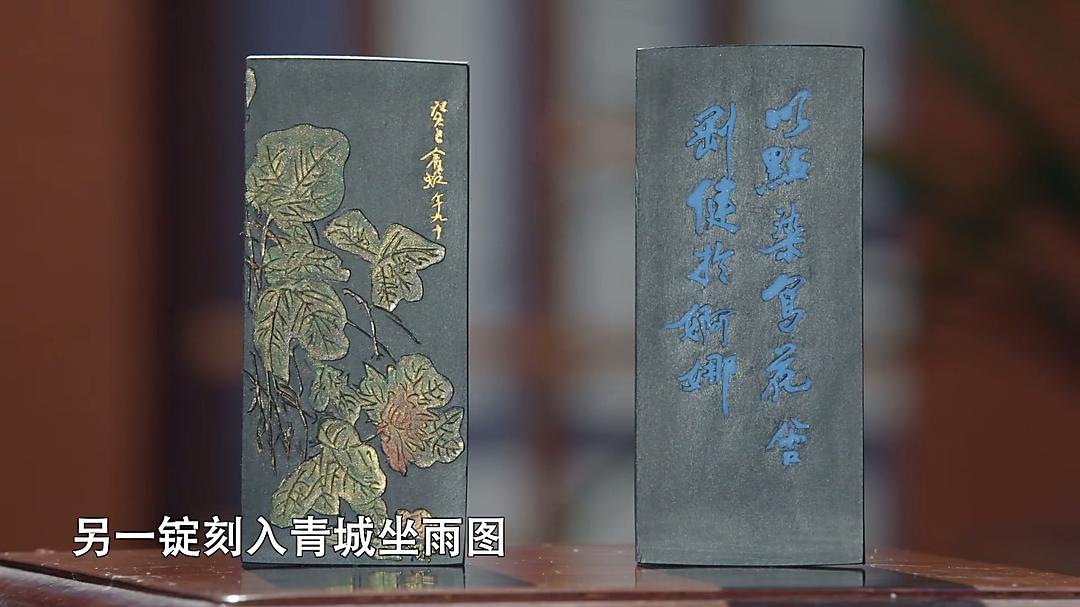 癸巳賓虹年九十
以點染寫花含
剛健於婀娜
另一锭刻入青城坐雨图